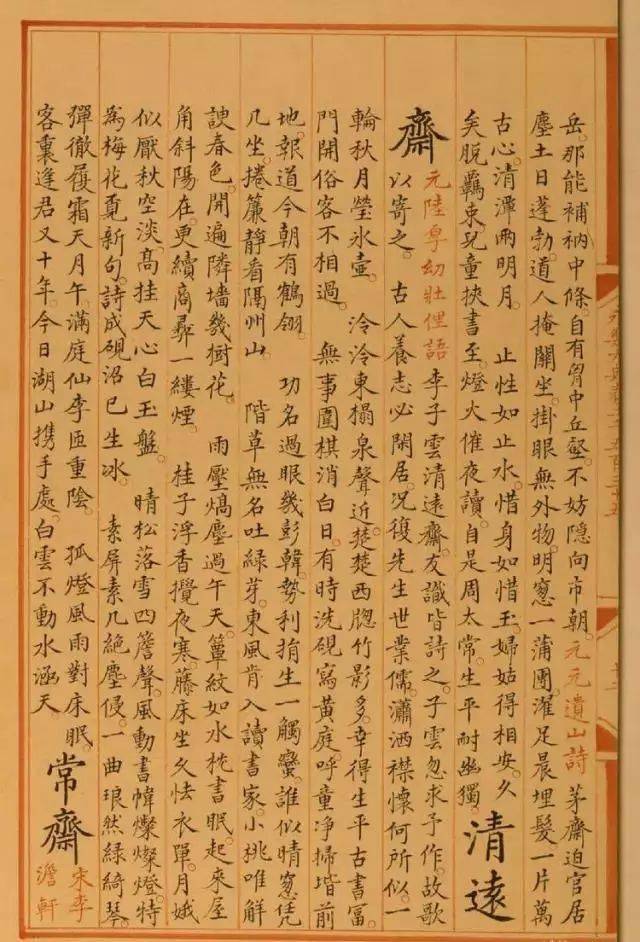 岳那能補衲中條。自有胷中丘壑。不妨隱向市朝。元元遺山詩 茅齋迫官居
塵土日蓬勃。道人掩關坐。掛眼無外物。明窻一蒲團。濯足晨埋髮一片萬
古心。清潭兩明月。 止性如止水。惜身如惜玉。婦姑得相安。久
矣脫羈束。兒童挾書至。燈火催夜讀。自是周太常生平耐幽獨。
清遠
齋
元陸厚幼壯俚語 李子雲清遠齋。友識皆詩之。子雲忽求予作。故歌
以寄之。 古人養志必閑居。况復先生世業儒。瀟洒襟懷何所似。一
輪秋月瑩氷壺。 泠泠東榻泉聲近。楚楚西牕竹影多。幸得生平古書冨
門開俗客不相過。 無事圍棋消白日。有時洗硯寫黃庭。呼童净掃堦前
地。報道今朝有鶴翎。 功名過眼幾彭韓。勢利捐生一觸蠻。誰似晴窻凭
几坐。捲簾靜看隔州山。 階草無名吐綠芽。東風肯入讀書家。小桃唯解
諛春色。開遍隣墻幾樹花。 雨壓熇塵過午天。簟紋如水枕書眠。起來屋
角斜陽在。更續商尋一縷煙。 桂子浮香攪夜寒。藤床坐久怯衣單。月娥
似厭秋空淡。高挂天心白玉盤。 晴松落雪四簷聲。風動書幃燦燦燈。特
爲梅花覔新句。詩成硯沼已生冰。 素屏素几絶塵侵。一曲琅然綠綺琴。
彈徹履霜天月午。滿庭仙李匝重陰。 孤燈風雨對床眠。
客裏逢君又十年。今日湖山携手處。白雲不動水涵天。
常齋
宋李
澹軒